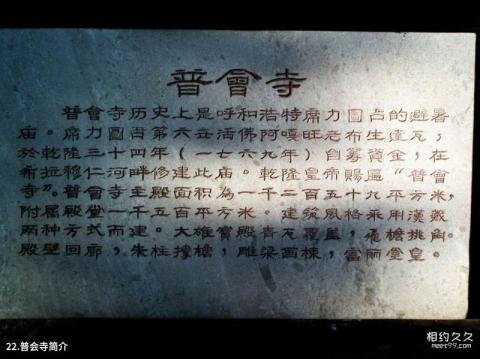 普會寺
普會寺历史上是呼和浩特席力圖占的避暑
庙。席力圖第六世活佛阿嘎旺老布生達瓦，
於乾隆三十四年（一七六九年）自筹資金，在
希拉穆仁河畔修建此庙。乾隆皇帝賜遍“普會
寺”。普會寺主殿面积為一千二百五十九平方米，
附属殿堂一千五百平方米。建筑風格采用漢藏
两种方式而建。大雄寶殿青瓦覆盖，飛檐挑角。
殿壁回廊，朱柱撑檐，雕梁画棟，富丽堂皇。
22.普会寺简介
相约久久
meet99.com